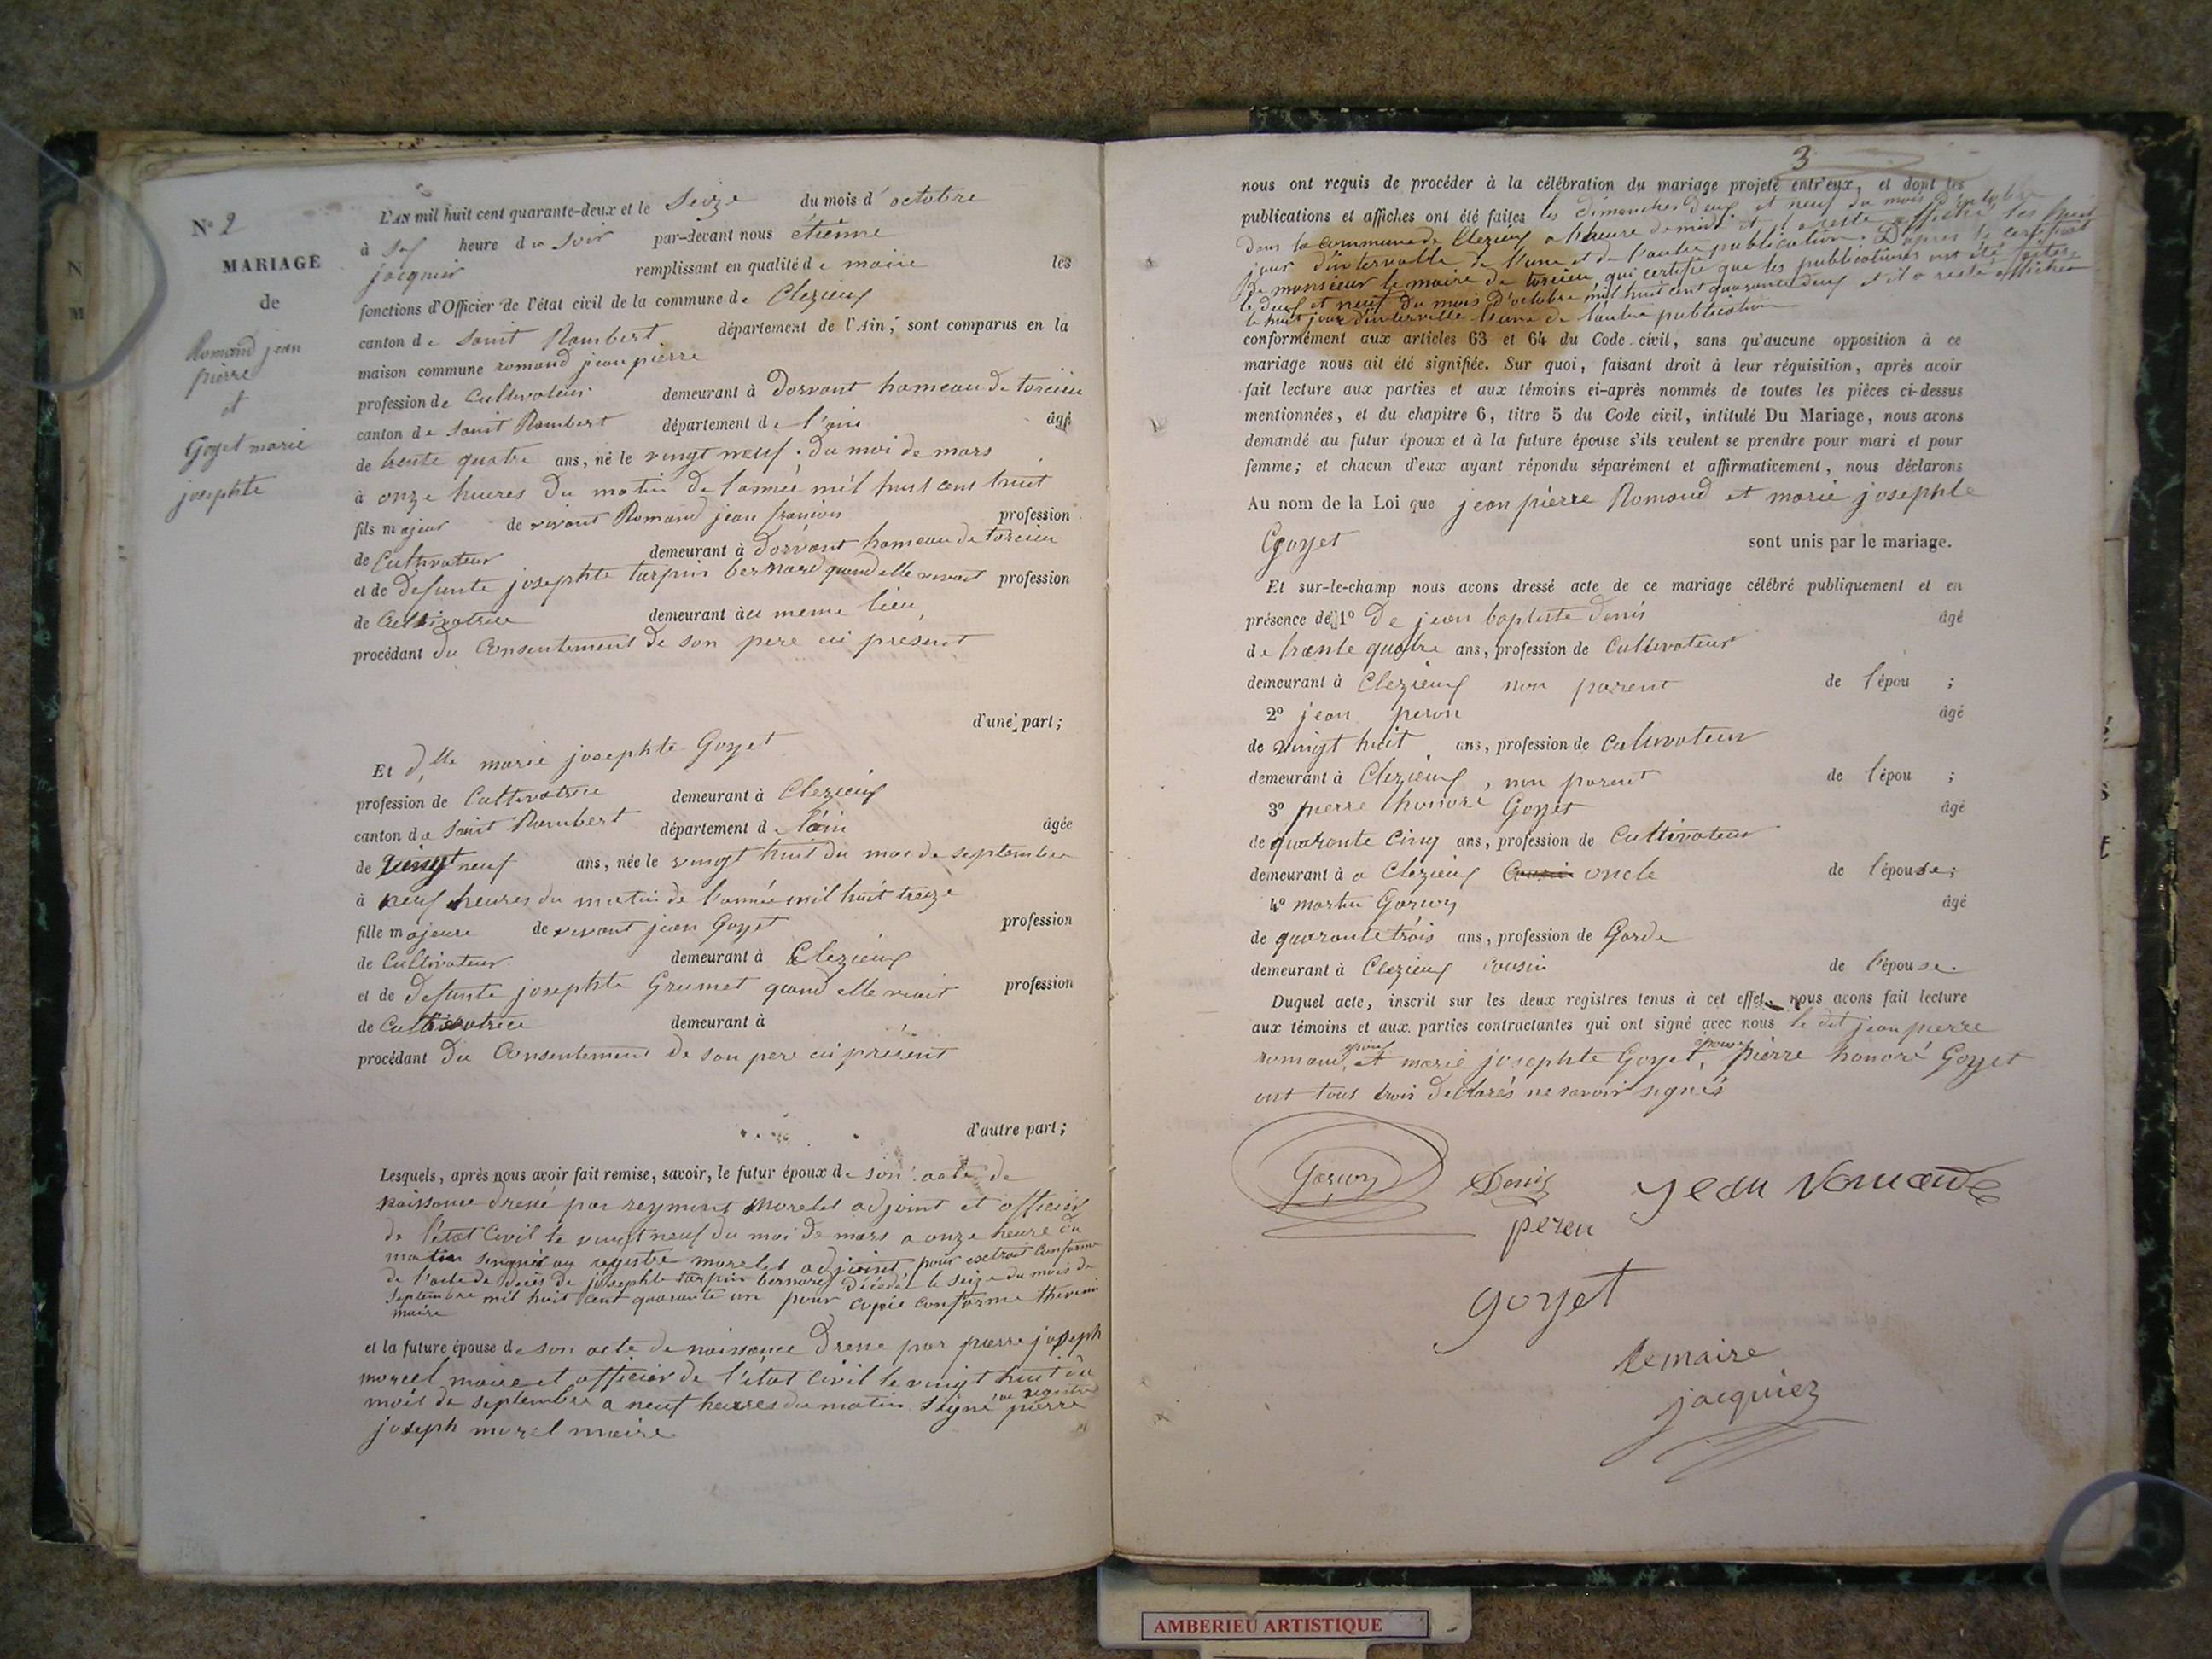 N° 2
MARIAGE
de
Romand jean
pierre
et
Goyet marie
josephte
L'AN mil huit cent quarante-deux et le seize du mois d'octobre
à sef heure du soir par-devant nous étienne
jacquier remplissant en qualité de maire les
fonctions d'Officier de l'état civil de la commune de Clezieux
canton de saint Rambert département de l'Ain, sont comparus en la
maison commune romand jean pierre
profession de Cultivateur demeurant à Dorvant hameau de torcieu
canton de saint Rambert département de l'ain âgé
de trente quatre ans, né le vingt neuf du moi de mars
à onze heures du matin de l'année mil huit cent huit
fils majeur de vivant Romand jean francois profession
de Cultivateur demeurant à Dorvant hameau de torcieu
et de defunte josephte turpin bernard quand elle vivait profession
de Cultivatrice demeurant au meme lieu
procédant du Consentement de son pere ici présent
d'une part;
Et dlle marie josephte Goyet
profession de Cultivatrice demeurant à Clezieux
canton de saint Rambert département de l'ain âgée
de vingt neuf ans, née le vingt huit du moi de septembre
à neuf heures du matin de l'année mil huit treize
fille majeure de vivant jean Goyet profession
de Cultivateur demeurant à Clezieux
et de defunte josephte Grumet quand elle vivait profession
de Cultivatrice demeurant à
procédant du Consentement de son pere ici présent
d'autre part;
Lesquels, après nous avoir fait remise, savoir, le futur époux de son acte de
naissance drené par reymont morelet adjoint et officier
de l'état Civil le vingt neuf du moi de mars a onze heure du
matin signé au registre morelet adjoint pour extrait conforme
de l'acte de décès de josephte turpin bernard décédée le seize du mois de
septembre mil huit cent quarante un pour copie conforme thevenin
maire
et la future épouse de son acte de naissance drené par pierre joseph
morel maire et officier de l'état civil le vingt huit du
mois de septembre a neuf heures du matin signé au registre pierre
joseph morel maire
3
nous ont requis de procéder à la célébration du mariage projeté entr'eux, et dont les
publications et affiches ont été faites les dimanches deux et neuf du mois d'octobre
dans la commune de Clezieux a lheure de midi et il a resté affiché les huit
jour d'intervalle de l'une et de l'autre publication. D'apres le certificat
de monsieur le maire de torcieu qui certifie que les publications ont été faites
le deux et neuf du mois d'octobre mil huit cent quarante deux et il a resté affiché
le huit jour d'intervalle l'une de l'autre publication
conformément aux articles 63 et 64 du Code civil, sans qu'aucune opposition à ce
mariage nous ait été signifiée. Sur quoi, faisant droit à leur réquisition, après avoir
fait lecture aux parties et aux témoins ci-après nommés de toutes les pièces ci-dessus
mentionnées, et du chapitre 6, titre 5 du Code civil, intitulé Du Mariage, nous avons
demandé au futur époux et à la future épouse s'ils veulent se prendre pour mari et pour
femme; et chacun d'eux ayant répondu séparément et affirmativement, nous déclarons
Au nom de la Loi que jean pierre Romand et marie josephte
Goyet sont unis par le mariage.
Et sur-le-champ nous avons dressé acte de ce mariage célébré publiquement et en
présence de 1° De jean baptiste denis âgé
de trente quatre ans, profession de Cultivateur
demeurant à Clezieux non parent de l'épou ;
2° jean peron âgé
de vingt huit ans, profession de Cultivateur
demeurant à Clezieux, non parent de l'épou ;
3° pierre honoré Goyet âgé
de quaronte cinq ans, profession de Cultivateur
demeurant à a Clezieux oncle de l'épouse;
4° martin Garcon âgé
de quarante trois ans, profession de Garde
demeurant à Clezieux cousin de l'épouse.
Duquel acte, inscrit sur les deux registres tenus à cet effet, nous avons fait lecture
aux témoins et aux parties contractantes qui ont signé avec nous le dit jean pierre
romand, époux et marie josephte Goyet, épouse pierre honoré Goyet
ont tous trois déclarés ne savoir signés
Garcon Denis jean Romand
peron
goyet
le maire
jacquier
AMBERIEU ARTISTIQUE